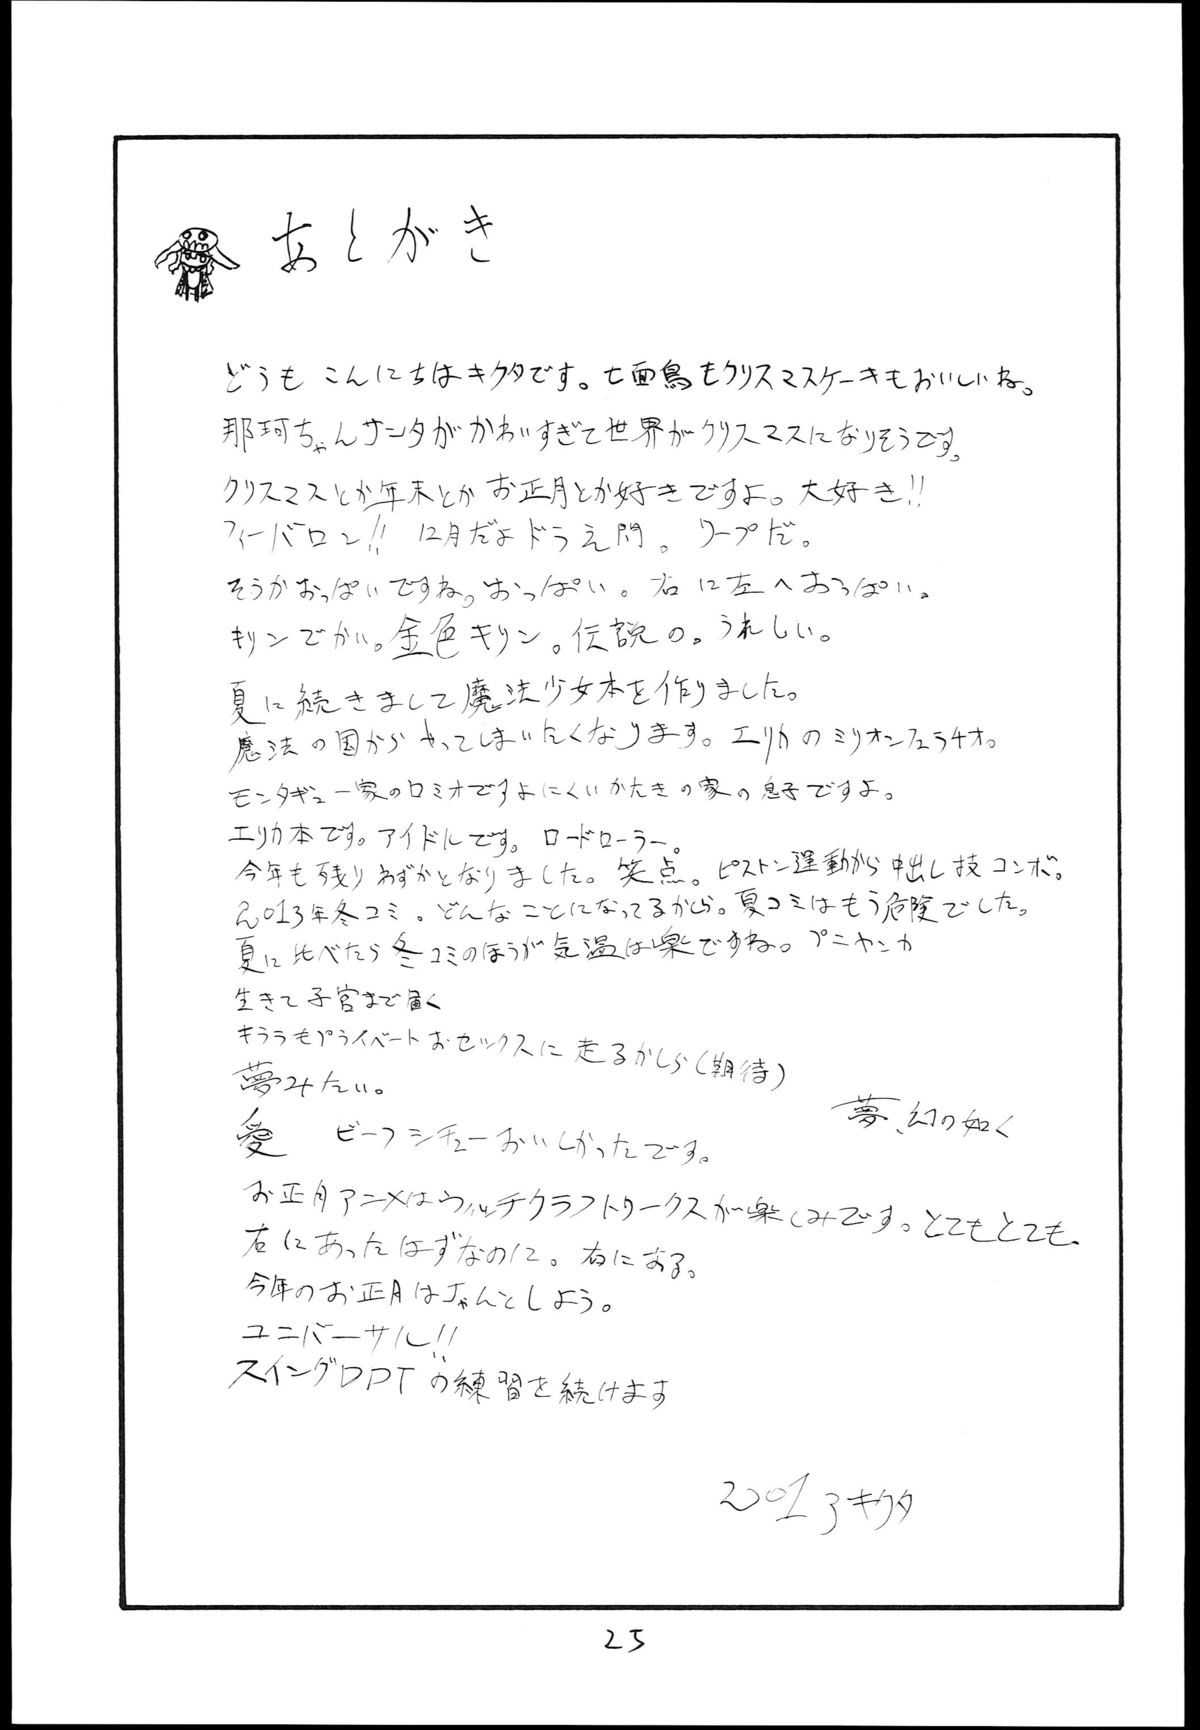 あとがき
どうも こんにちはキクタです。七面鳥もクリスマスケーキもおいしいね。
那珂ちゃんサンタがかわいすぎて世界がクリスマスになりそうです。
クリスマスとか年末とか お正月とか好きですよ。大好き!!
フィーバロン!! 12月だよドラえ門。ワープだ。
そうかおっぱいですね。おっぱい。右に左へおっぱい。
キリンでかい。金色キリン。伝説の。うれしい。
夏に続きまして魔法少女本を作りました。
魔法の国からやってしまいたくなります。エリカのミリオンフェラチオ。
モンタギュー家のロミオですよにくいかたきの家の息子ですよ。
エリカ本です。アイドルです。ロードローラー。
今年も残りわずかとなりました。笑点。ピストン運動から中出し技コンボ。
2013年冬コミ。どんなことになってるかしら。夏コミはもう危険でした。
夏に比べたら冬コミのほうが気温は楽ですね。プニャンカ
生きて子宮まで届く
キララもプライベートおセックスに走るかしら(期待)
夢みたい。
夢、幻の如く
愛 ビーフシチューおいしかったです。
お正月アニメはウィッチクラフトワークスが楽しみです。とてもとても。
右にあったはずなのに。右にある。
今年のお正月はちゃんとしよう。
ユニバーサル!!
スイングDDTの練習を続けます
2013キクタ
25